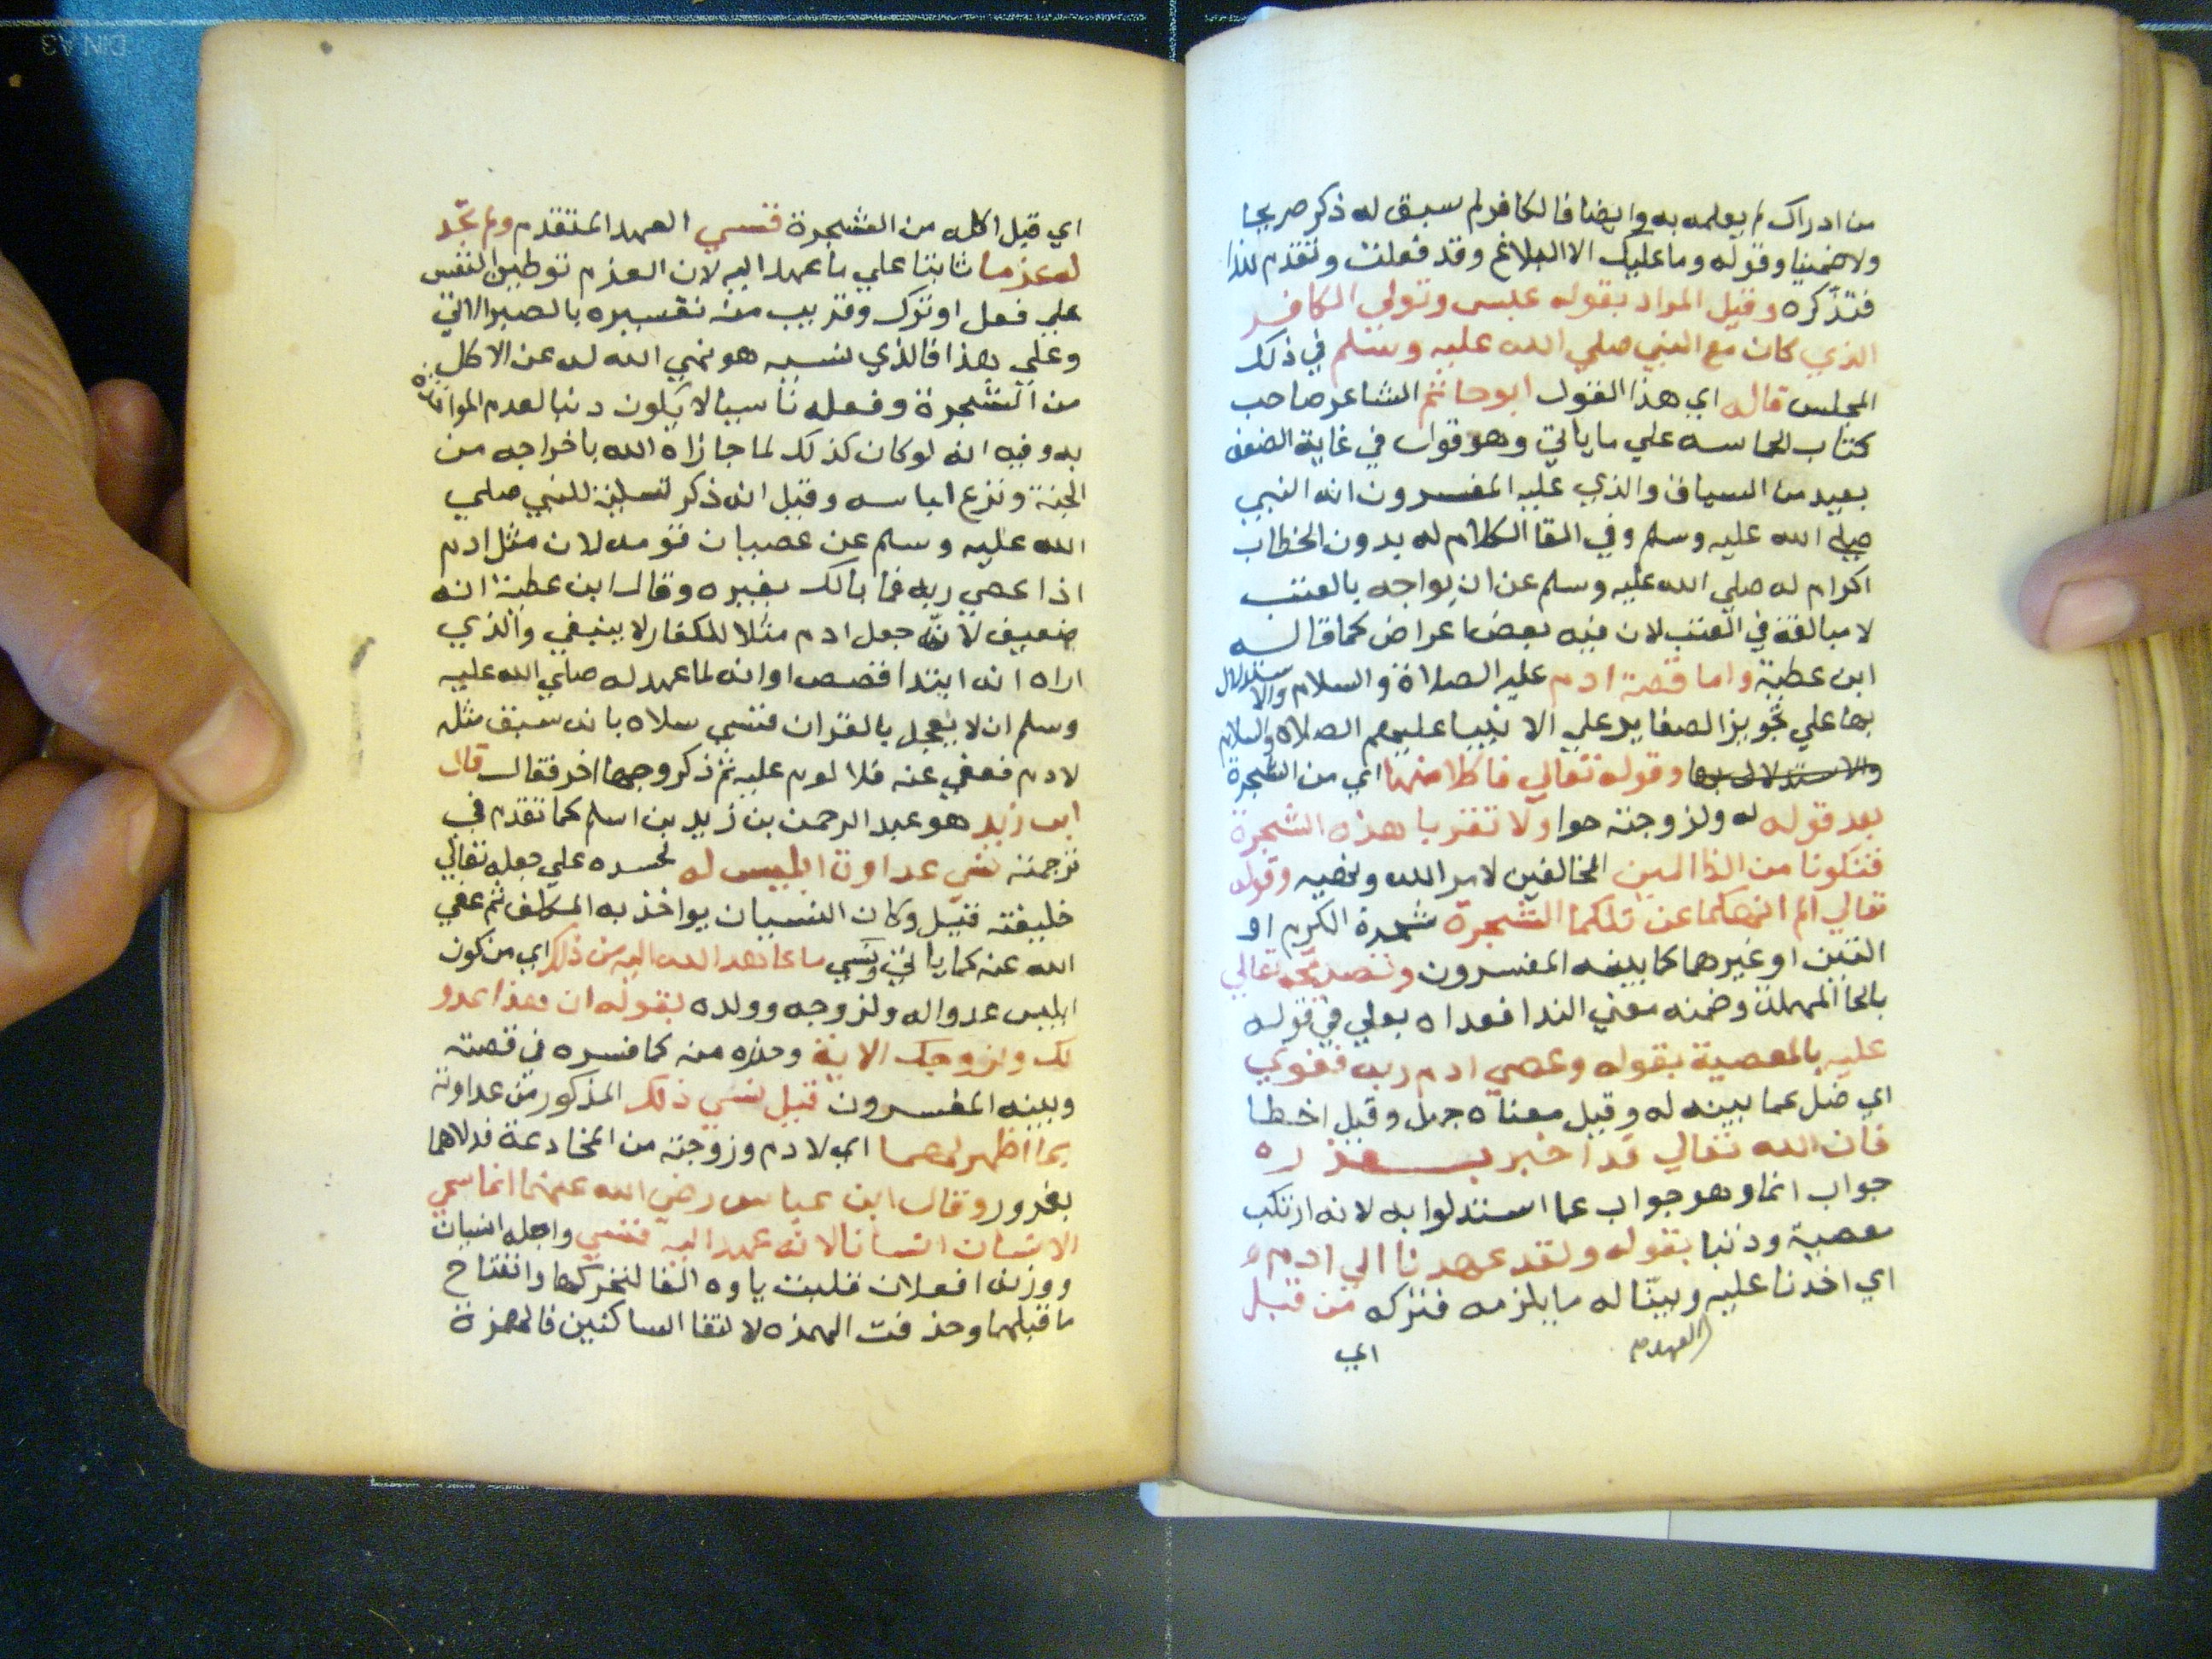 من ادراك لم يعلمه به وايضا فالكافر لم سبق له ذكر صريحا
ولا ضمنيا وقوله وما عليك الا البلاغ وقد فعلت وتقدم لهذا
فتذكره وقيل المراد بقوله عبس وتولي الكافر
الذي كان مع النبي صلي الله عليه وسلم في ذلك
المجلس قاله اي هذا القول ابو حاتم الشاعر صاحب
كتاب الحماسه علي ما ياتي وهو قول في غاية الضعف
بعيد من السياق والذي عليه المفسرون انه النبي
صلي الله عليه وسلم وفي القا الكلام له بدون الخطاب
اكرام له صلي الله عليه وسلم عن ان يواجه بالعتب
لا مبالغة في العتب لان فيه بعض اعراض كما قاله
ابن عطية واما قصة ادم عليه الصلاة والسلام والاستدلال
بها علي تجويز الصغاير علي الانبيا عليهم الصلاة والسلام
والاستدلال بها وقوله تعالي فاكلا منها اي من الشجرة
بعد قوله له ولزوجته حوا ولا تقربا هذه الشجرة
فتكونا من الظالمين المخالفين لامر الله ونهيه وقوله
تعالي الم انهكما عن تلكما الشجرة شجرة الكرم او
التين او غيرهما كما بينه المفسرون وتصريحه تعالي
بالحا المهملة وضمنه معني الندا فعداه بعلي في قوله
عليه بالمعصية بقوله وعصي ادم ربه فغوي
اي ضل عما بينه له وقيل معناه جهل وقيل اخطا
فان الله تعالي قد اخبر بعذره
جواب اما وهو جواب عما استدلوا به لانه ارتكب
معصية وذنبا بقوله ولقد عهدنا الي ادم
اي اخذنا عليه وبينا له ما يلزمه فتركه من قبل
العهد
اي
اي قبل اكله من الشجرة فنسي العهد المتقدم ولم نجد
له عزما ثابتا علي ما عهد اليه لان العزم توطين النفس
علي فعل او ترك وقريب منه تفسيره بالصبر الاتي
وعلي هذا فالذي نسيه هو نهي الله له عن الاكل
من الشجرة وفعله ناسيا لا يكون ذنبا لعدم المواخذة
به وفيه انه لو كان كذلك لما جازاه الله باخراجه من
الجنة ونزع لباسه وقيل انه ذكر تسلية للنبي صلي
الله عليه وسلم عن عصيان قومه لان مثل ادم
اذا عصي ربه فما بالك بغيره وقال ابن عطية انه
ضعيف لانه جعل ادم مثلا للكفار لا ينبغي والذي
اراه انه ابتدا قصص او انه لما عهد له صلي الله عليه
وسلم ان لا يعجل بالقران فنسي سلاه بانه سبق مثله
لادم فعفي عنه فلا لوم عليه ثم ذكر وجها اخر فقال قال
ابن زيد هو عبد الرحمن بن زيد بن اسلم كما تقدم في
ترجمته نسي عداوة ابليس له لحسده علي جعله تعالي
خليفته قيل وكان النسيان يواخذ به المكلف ثم عفي
الله عنه كما ياتي ونسي ما عاهد الله اليه من ذلك اي من كون
ابليس عدوا له ولزوجه وولده بقوله ان هذا عدو
لك ولزوجك الاية وحذره منه كما فسره في قصته
وبينه المفسرون قيل نسي ذلك المذكور من عداوته
بما اظهر لهما اي لادم وزوجته من المخادعة فدلاهما
بغرور وقال ابن عباس رضي الله عنهما انما سمي
الانسان انسانا لانه عهد اليه فنسي واصله انسيان
ووزنه افعلان قلبت ياوه الفا لتحركها وانفتاح
ما قبلها وحذفت الهمزه لالتقا الساكنين فالهمزة